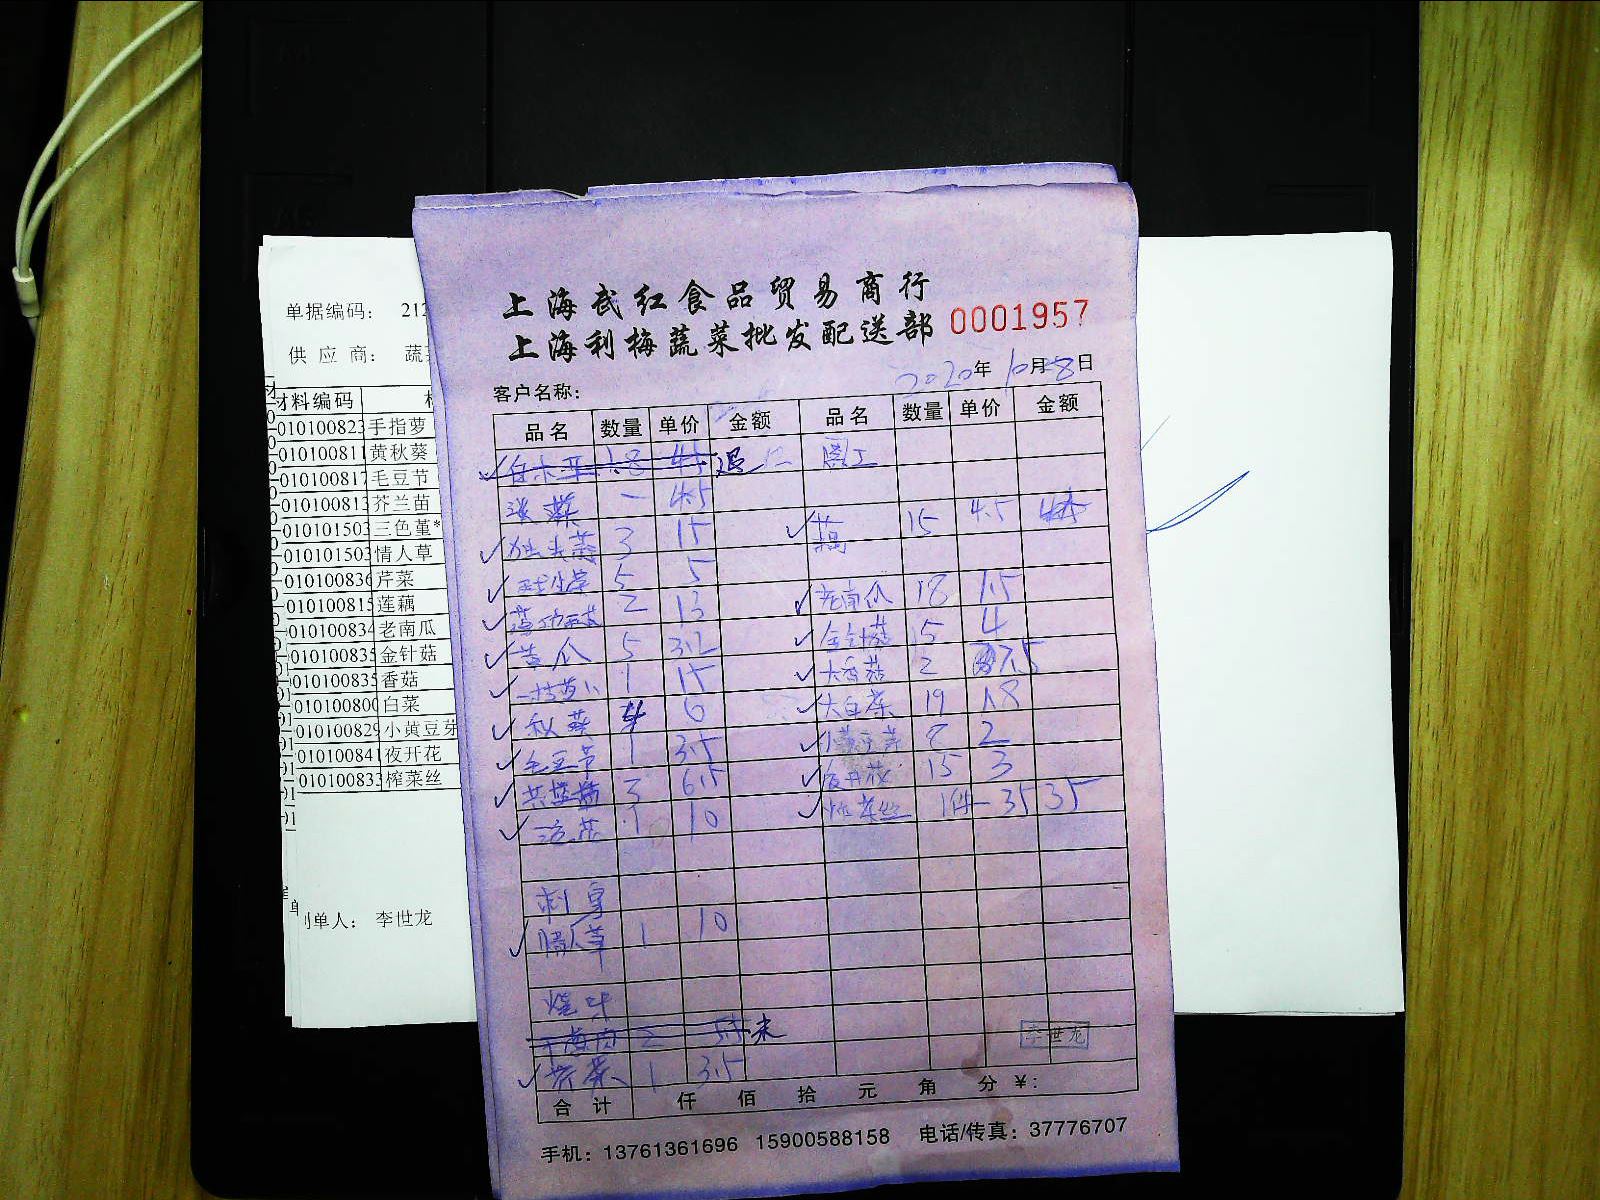 上海武红食品贸易商行
上海利梅蔬菜批发配送部 0001957
2020年10月8日
客户名称：
品名 数量 单价 金额 品名 数量 单价 金额
4.5 退
4.5
独头蒜 3 15 藕 15 4.5
5 5
2 13 老南瓜 18 1.5
黄瓜 5 3.2 金针菇 5 4
1 15 大香菇 2 7.5
秋葵 4 6 大白菜 19 1.8
毛豆节 1 3.5 小黄豆芽 8 2
芥兰苗 3 6.5 夜开花 15 3
三色堇 1 10 榨菜丝 1件 35 35
刺身
情人草 1 10
烧味
2 未
芹菜 1 3.5
李世龙
合计 仟 佰 拾 元 角 分 ¥：
手机：13761361696 15900588158 电话/传真：37776707
单据编码： 212
供应商： 蔬
材料编码
010100823 手指萝
010100811 黄秋葵
010100817 毛豆节
010100813 芥兰苗
010101503 三色堇*
010101503 情人草
010100836 芹菜
010100815 莲藕
010100834 老南瓜
010100835 金针菇
010100835 香菇
010100800 白菜
010100829 小黄豆芽
010100841 夜开花
010100833 榨菜丝
制单人： 李世龙